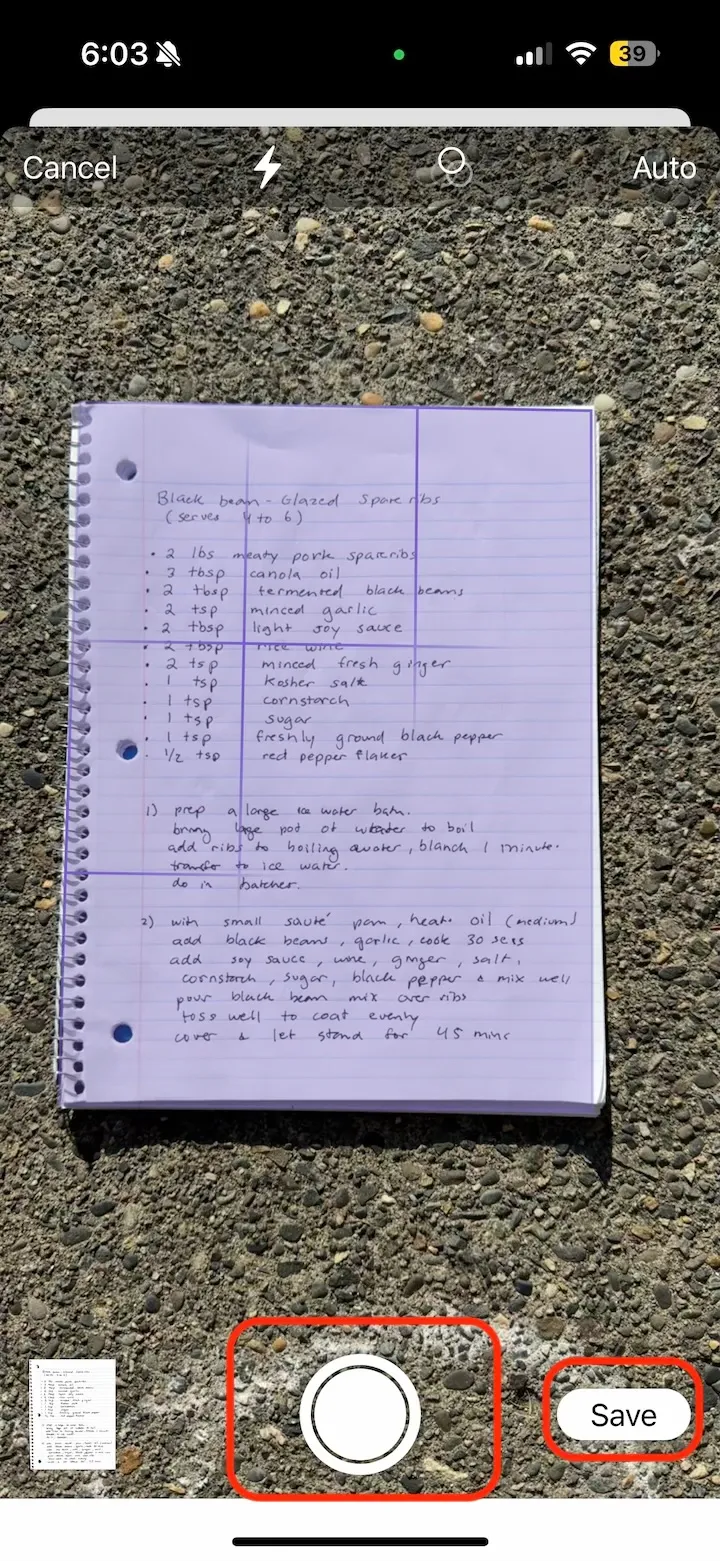 6:03 39
Cancel Auto
Black bean - Glazed Spare ribs
(serves 4 to 6)
• 2 lbs meaty pork spareribs
• 3 tbsp canola oil
• 2 tbsp fermented black beans
• 2 tsp minced garlic
• 2 tbsp light soy sauce
• 2 tbsp rice wine
• 2 tsp minced fresh ginger
• 1 tsp kosher salt
• 1 tsp cornstarch
• 1 tsp sugar
• 1 tsp freshly ground black pepper
• 1/2 tsp red pepper flakes
1) prep a large ice water bath.
bring large pot of water to boil
add ribs to boiling water, blanch 1 minute.
transfer to ice water.
do in batches.
2) with small sauté pan, heat oil (medium)
add black beans, garlic, cook 30 secs
add soy sauce, wine, ginger, salt,
cornstarch, sugar, black pepper & mix well
pour black bean mix over ribs
toss well to coat evenly
cover & let stand for 45 mins
Save